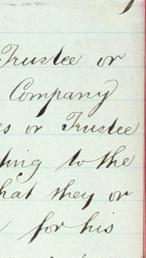 Trustee or
Company
or Trustee
to the
that they or
for his